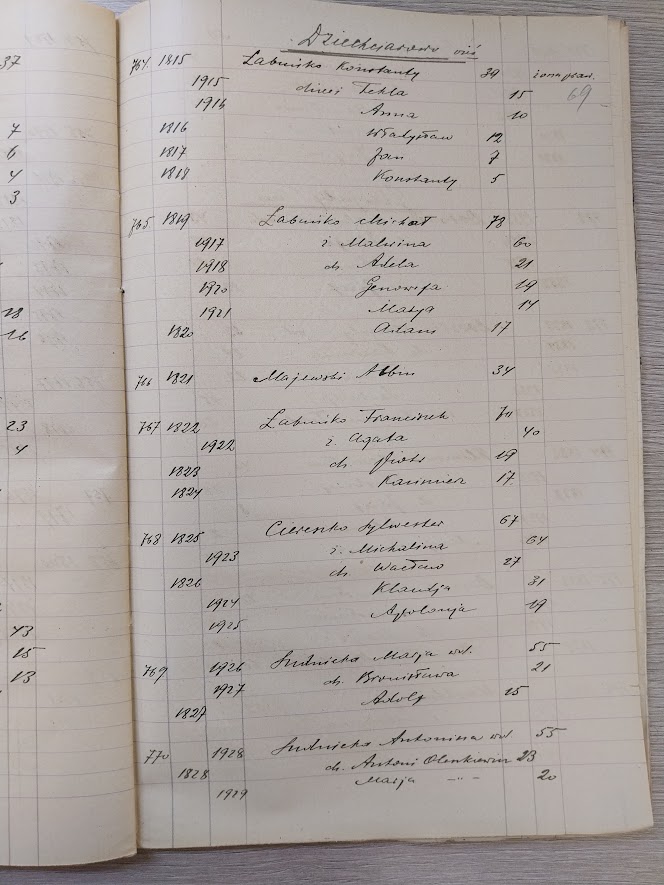 37
7
6
4
3
18
16
23
4
43
15
13
wieś
764. 1815 Łabuńko Konstanty 39 żona praw.
1915 dzieci Tekla 15 69
1916 Anna 10
1816 Władysław 12
1817 Jan 7
1818 Konstanty 5
765 1819 Łabuńko Michał 78
1917 ż. Malwina 60
1918 dz. Adela 21
1920 Genowefa 19
1921 Marja 14
1820 Adam 17
766 1821 Majewski Albin 34
767 1822 Łabuńko Franciszek
1922 ż. Agata 40
1823 dz. Piotr 19
1824 Kazimierz 17
768 1825 Sylwester 67
1923 ż. Michalina 64
1826 dz. Wacław 27
1924 Klaudja 31
1925 Apolonja 19
769 1926 Marja wd. 55
1927 dz. Bronisława 21
1827 Adolf 15
770 1928 Antonina wd 55
1828 dz. Antoni Olenkiewicz 23
1929 Marja -"- 20